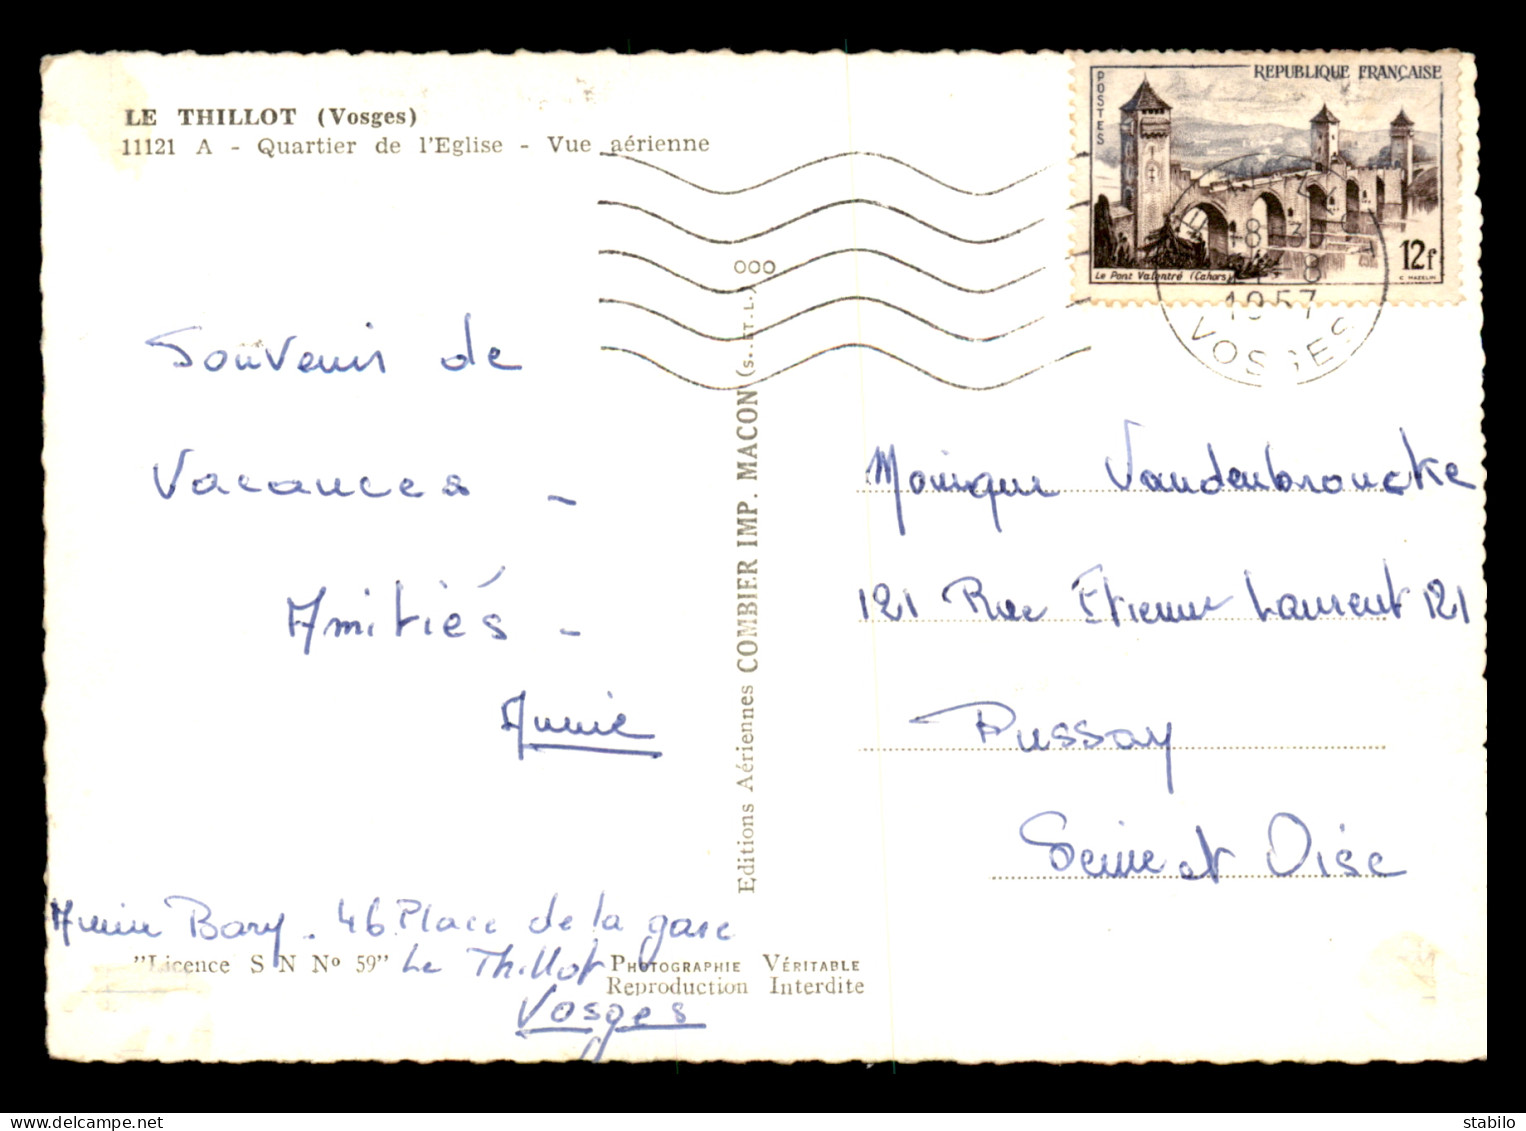 LE THILLOT (Vosges)
11121 A - Quartier de l'Eglise - Vue aérienne
REPUBLIQUE FRANÇAISE
POSTES
Le Pont Valentré (Cahors)
12f
C. MAZELIN
18-30
-8
1957
VOSGES
Souvenir de
Vacances -
Amitiés -
Annie
Annie Bary. 46 Place de la gare
Le Thillot
Vosges
"Licence S N N° 59"
PHOTOGRAPHIE VÉRITABLE
Reproduction Interdite
Editions Aériennes COMBIER IMP. MACON (S.-ET-L.)
000
Monique Vandenbroucke
121 Rue Etienne Laurent 121
Pussay
Seine et Oise
stabilo